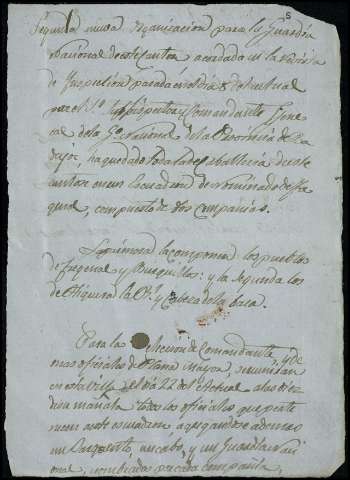 5
Segun la nueva organizacion para la Guardia
Nacional de este Canton acordada en la revista
de Inspeccion pasada en el dia 8 del actual
por el Sr. Subinspector y Comandante Gene
ral de la G. Nacional de la Provincia de Ba
dajoz, ha quedado toda la de caballeria de este
Canton en un Escuadron denominado de Fre
genal, compuesto de dos Compañias.
La primera la componen los pueblos
de Fregenal y Burguillos: y la segunda los
de Higuera la Rl. y Cabeza la baca.
Para la eleccion de Comandante, y de
mas oficiales de Plana Mayor, se reuniran
en esta Villa el dia 22 del actual a las diez
de su mañana todos los oficiales que perte
necen a este escuadron agregandose ademas
un Sargento, un cabo, y un Guardia Naci
onal, nombrados por cada compañia,